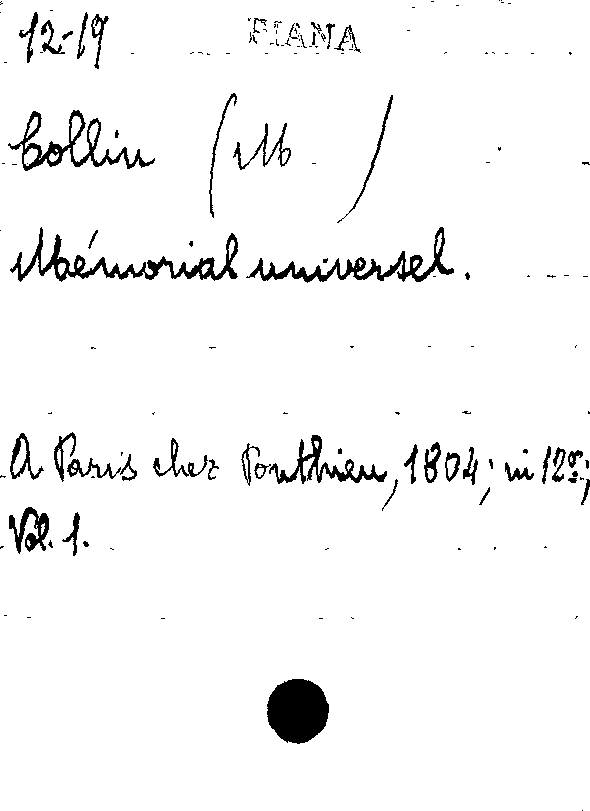 12-19 FIANA
Collin (M )
Mémorial universel.
A Paris chez Ponthieu, 1804; in 12º;
Vol. 1.